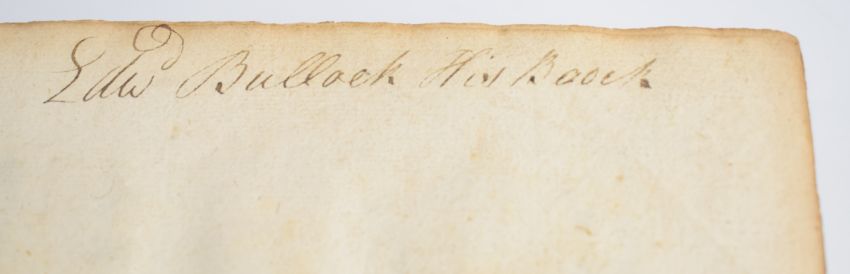 Edwd Bullock His Boock